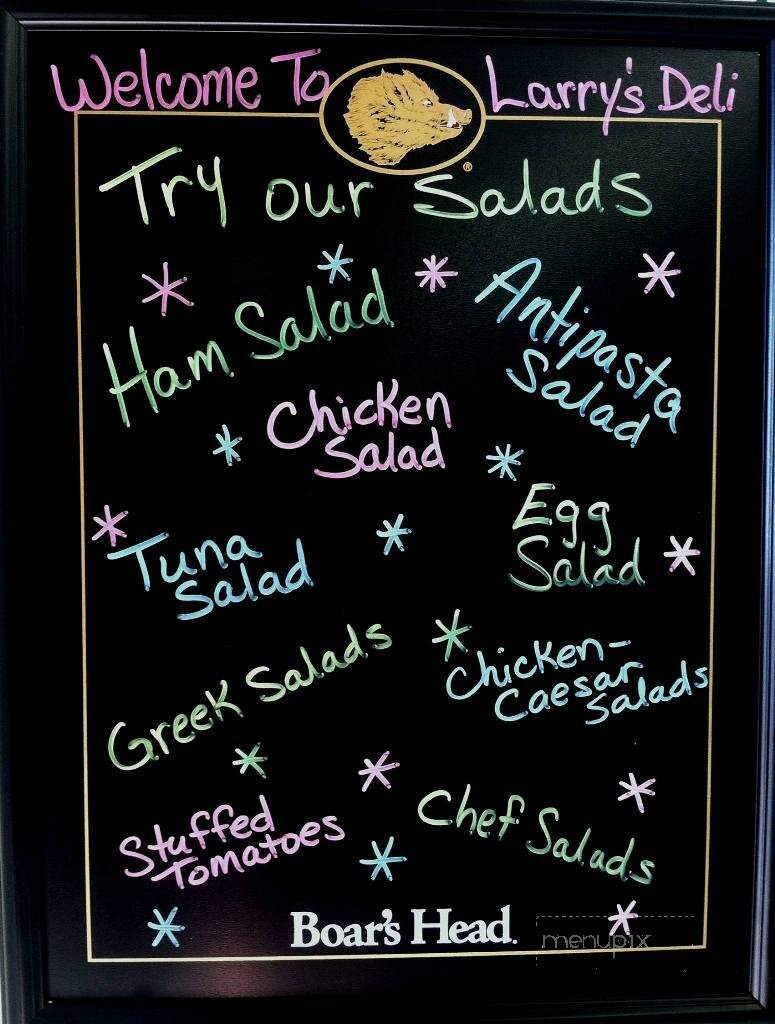 Welcome To Larry's Deli
®
Try our Salads
Ham Salad
Antipasta
Salad
Chicken
Salad
Egg
Salad
Tuna
Salad
Greek Salads
Chicken-
Caesar
Salads
Stuffed
Tomatoes
Chef Salads
Boar's Head.
menupix